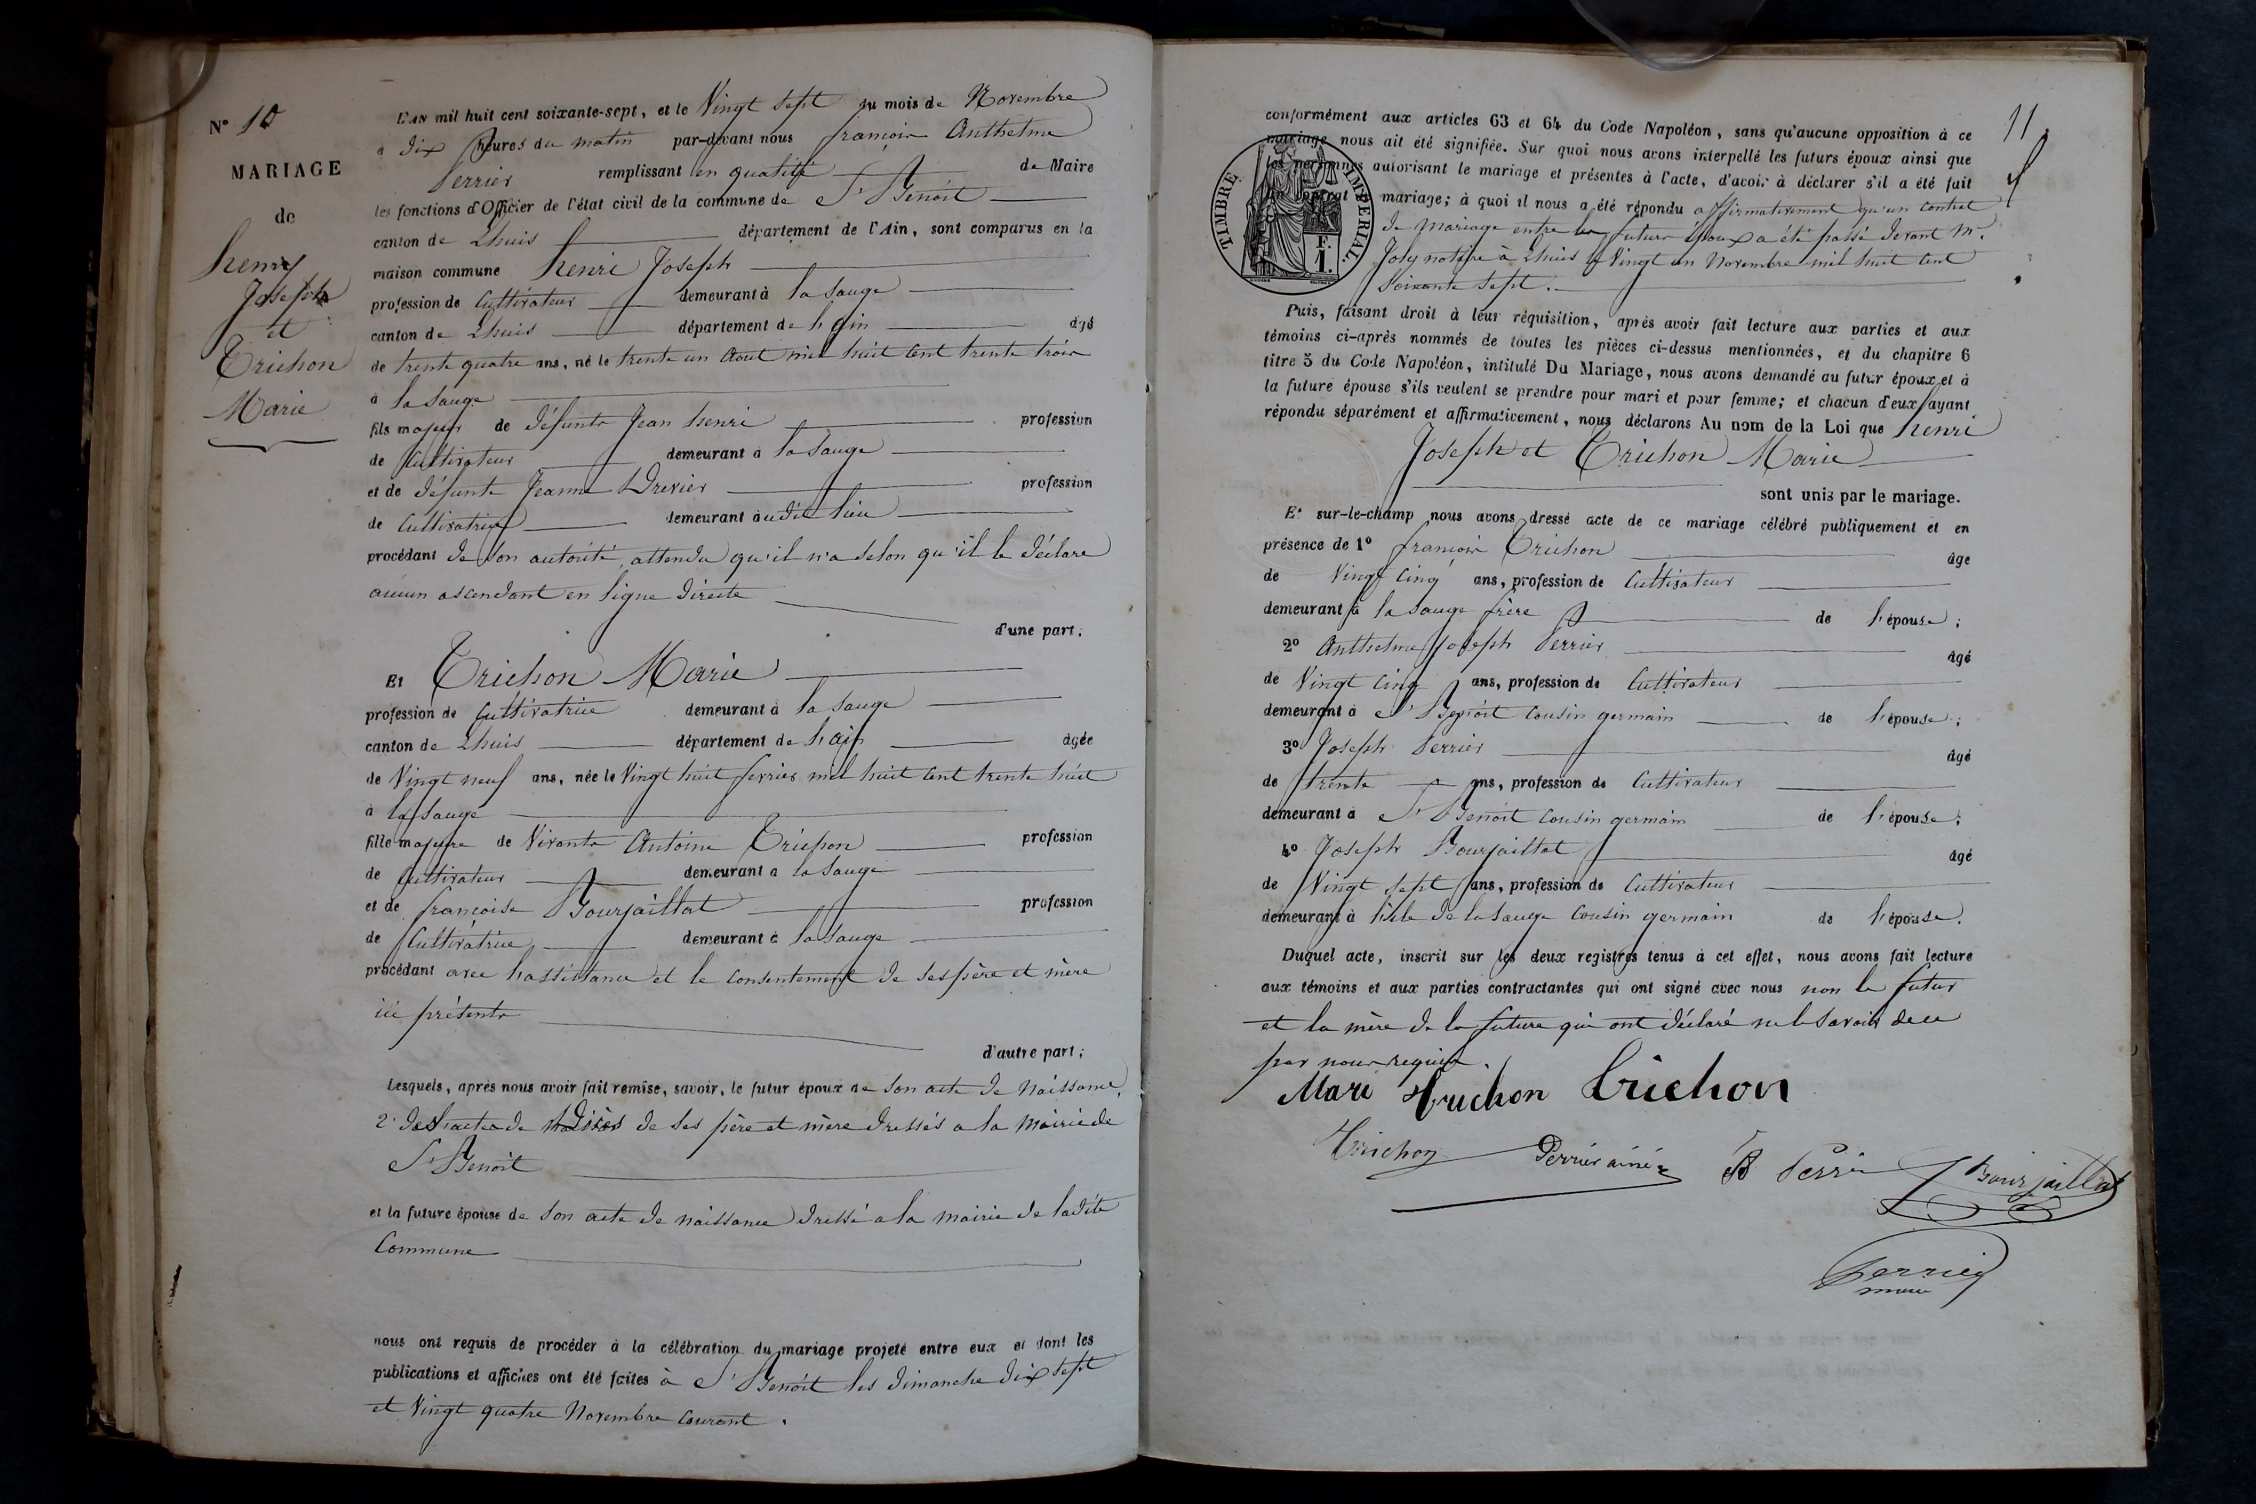 N° 10
MARIAGE
de
henry
Joseph
et
Trichon
Marie
L'AN mil huit cent soixante-sept, et le Vingt sept du mois de Novembre
à dix heures du matin par-devant nous françois Anthelme
Perrier remplissant en qualité de Maire
les fonctions d'Officier de l'état civil de la commune de St Benoit
canton de Lhuis département de l'Ain, sont comparus en la
maison commune henri Joseph
profession de Cultivateur demeurant à la Sauge
canton de Lhuis département de l'ain âgé
de trente quatre ans, né le trente un Aout mil huit cent trente trois
à la Sauge
fils majeur de défunts Jean henri profession
de Cultivateur demeurant à la Sauge
et de défunte Jeanne Drevier profession
de Cultivatrice demeurant audit lieu
procédant de son autorité, attendu qu'il n'a selon qu'il le déclare
aucun ascendant en ligne directe
d'une part;
Et Trichon Marie
profession de Cultivatrice demeurant à la Sauge
canton de Lhuis département de l'ain âgée
de Vingt neuf ans, née le Vingt huit fevrier mil huit cent trente huit
à la Sauge
fille majeure de Vivants Antoine Trichon profession
de Cultivateur demeurant à la Sauge
et de françoise Bourjaillat profession
de Cultivatrice demeurant à la Sauge
procédant avec l'assistance et le consentement de ses père et mère
ici présents
d'autre part;
Lesquels, après nous avoir fait remise, savoir, le futur époux de son acte de naissance,
2° des actes de décès de ses père et mère dressés a la mairie de
St Benoit
et la future épouse de son acte de naissance dressé a la mairie de ladite
Commune
nous ont requis de procéder à la célébration du mariage projeté entre eux et dont les
publications et affiches ont été faites à St Benoit les dimanche dix sept
et Vingt quatre Novembre courant.
11
conformément aux articles 63 et 64 du Code Napoléon, sans qu'aucune opposition à ce
mariage nous ait été signifiée. Sur quoi nous avons interpellé les futurs époux ainsi que
les personnes autorisant le mariage et présentes à l'acte, d'avoir à déclarer s'il a été fait
contrat mariage; à quoi il nous a été répondu affirmativement qu'un contrat
de mariage entre les futurs époux a été passé devant Me.
Joly notaire à Lhuis le Vingt un Novembre mil huit cent
Soixante Sept.
TIMBRE IMPERIAL.
F.
1.
Puis, faisant droit à leur réquisition, après avoir fait lecture aux parties et aux
témoins ci-après nommés de toutes les pièces ci-dessus mentionnées, et du chapitre 6
titre 5 du Code Napoléon, intitulé Du Mariage, nous avons demandé au futur époux et à
la future épouse s'ils veulent se prendre pour mari et pour femme; et chacun d'eux ayant
répondu séparément et affirmativement, nous déclarons Au nom de la Loi que henri
Joseph et Trichon Marie
sont unis par le mariage.
Et sur-le-champ nous avons dressé acte de ce mariage célébré publiquement et en
présence de 1° françois Trichon âgé
de Vingt cinq ans, profession de Cultivateur
demeurant à la Sauge frère de l'épouse;
2° Anthelme Joseph Perrier âgé
de Vingt cinq ans, profession de Cultivateur
demeurant à St Benoit cousin germain de l'épouse;
3° Joseph Perrier âgé
de trente ans, profession de Cultivateur
demeurant à St Benoit cousin germain de l'épouse;
4° Joseph Bourjaillat âgé
de Vingt sept ans, profession de Cultivateur
demeurant à l'isle de la Sauge cousin germain de l'épouse.
Duquel acte, inscrit sur les deux registres tenus à cet effet, nous avons fait lecture
aux témoins et aux parties contractantes qui ont signé avec nous non le futur
et la mère de la future qui ont déclaré ne le Savoir de ce
par nous requis.
Mari Truchon Trichon
Trichon Perrier ainé Perrin Bourjaillat
Perrier
maire